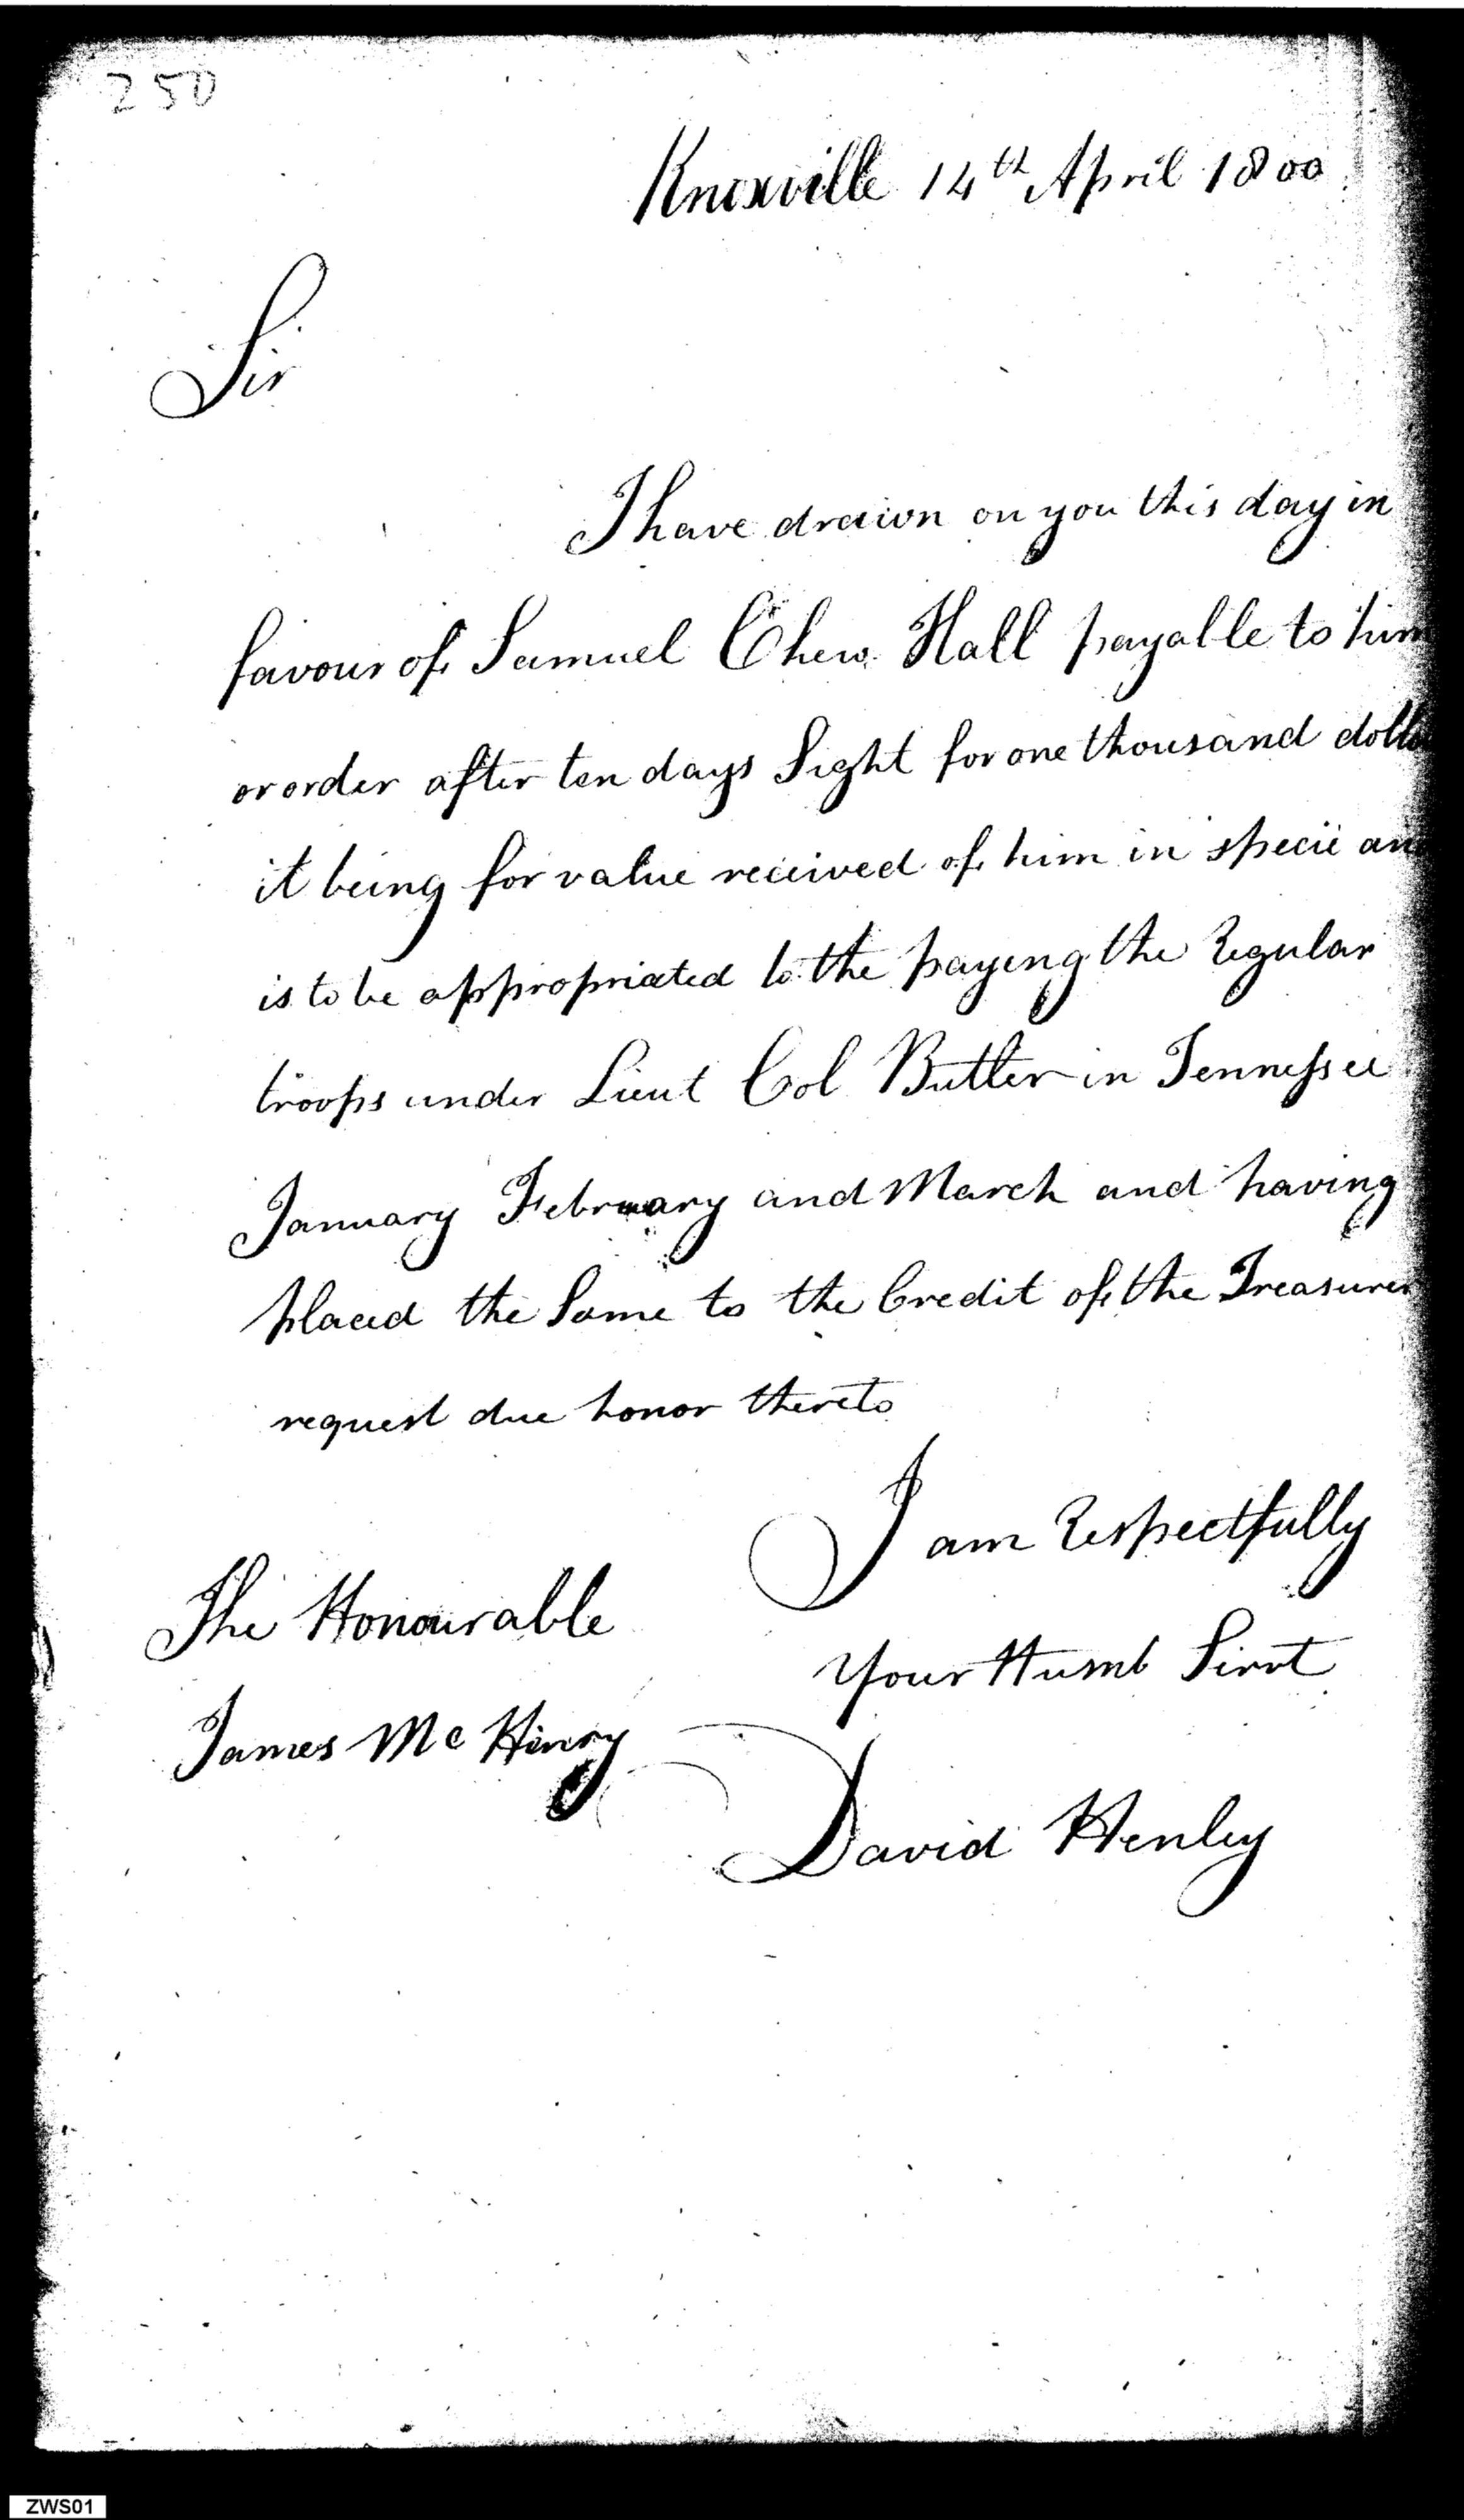 250
Knoxville 14th April 1800
Sir
I have drawn on you this day in
favour of Samuel Chew Hall payable to him
or order after ten days Sight for one thousand doll
it being for value received of him in specie an
is to be appropriated to the paying the Regular
troops under Lieut Col Butler in Tennessee
January February and March and having
placed the Same to the Credit of the Treasurer
request due honor thereto
I am Respectfully
The Honourable
Your Humb Servt
James McHenry
David Henley
ZWS01